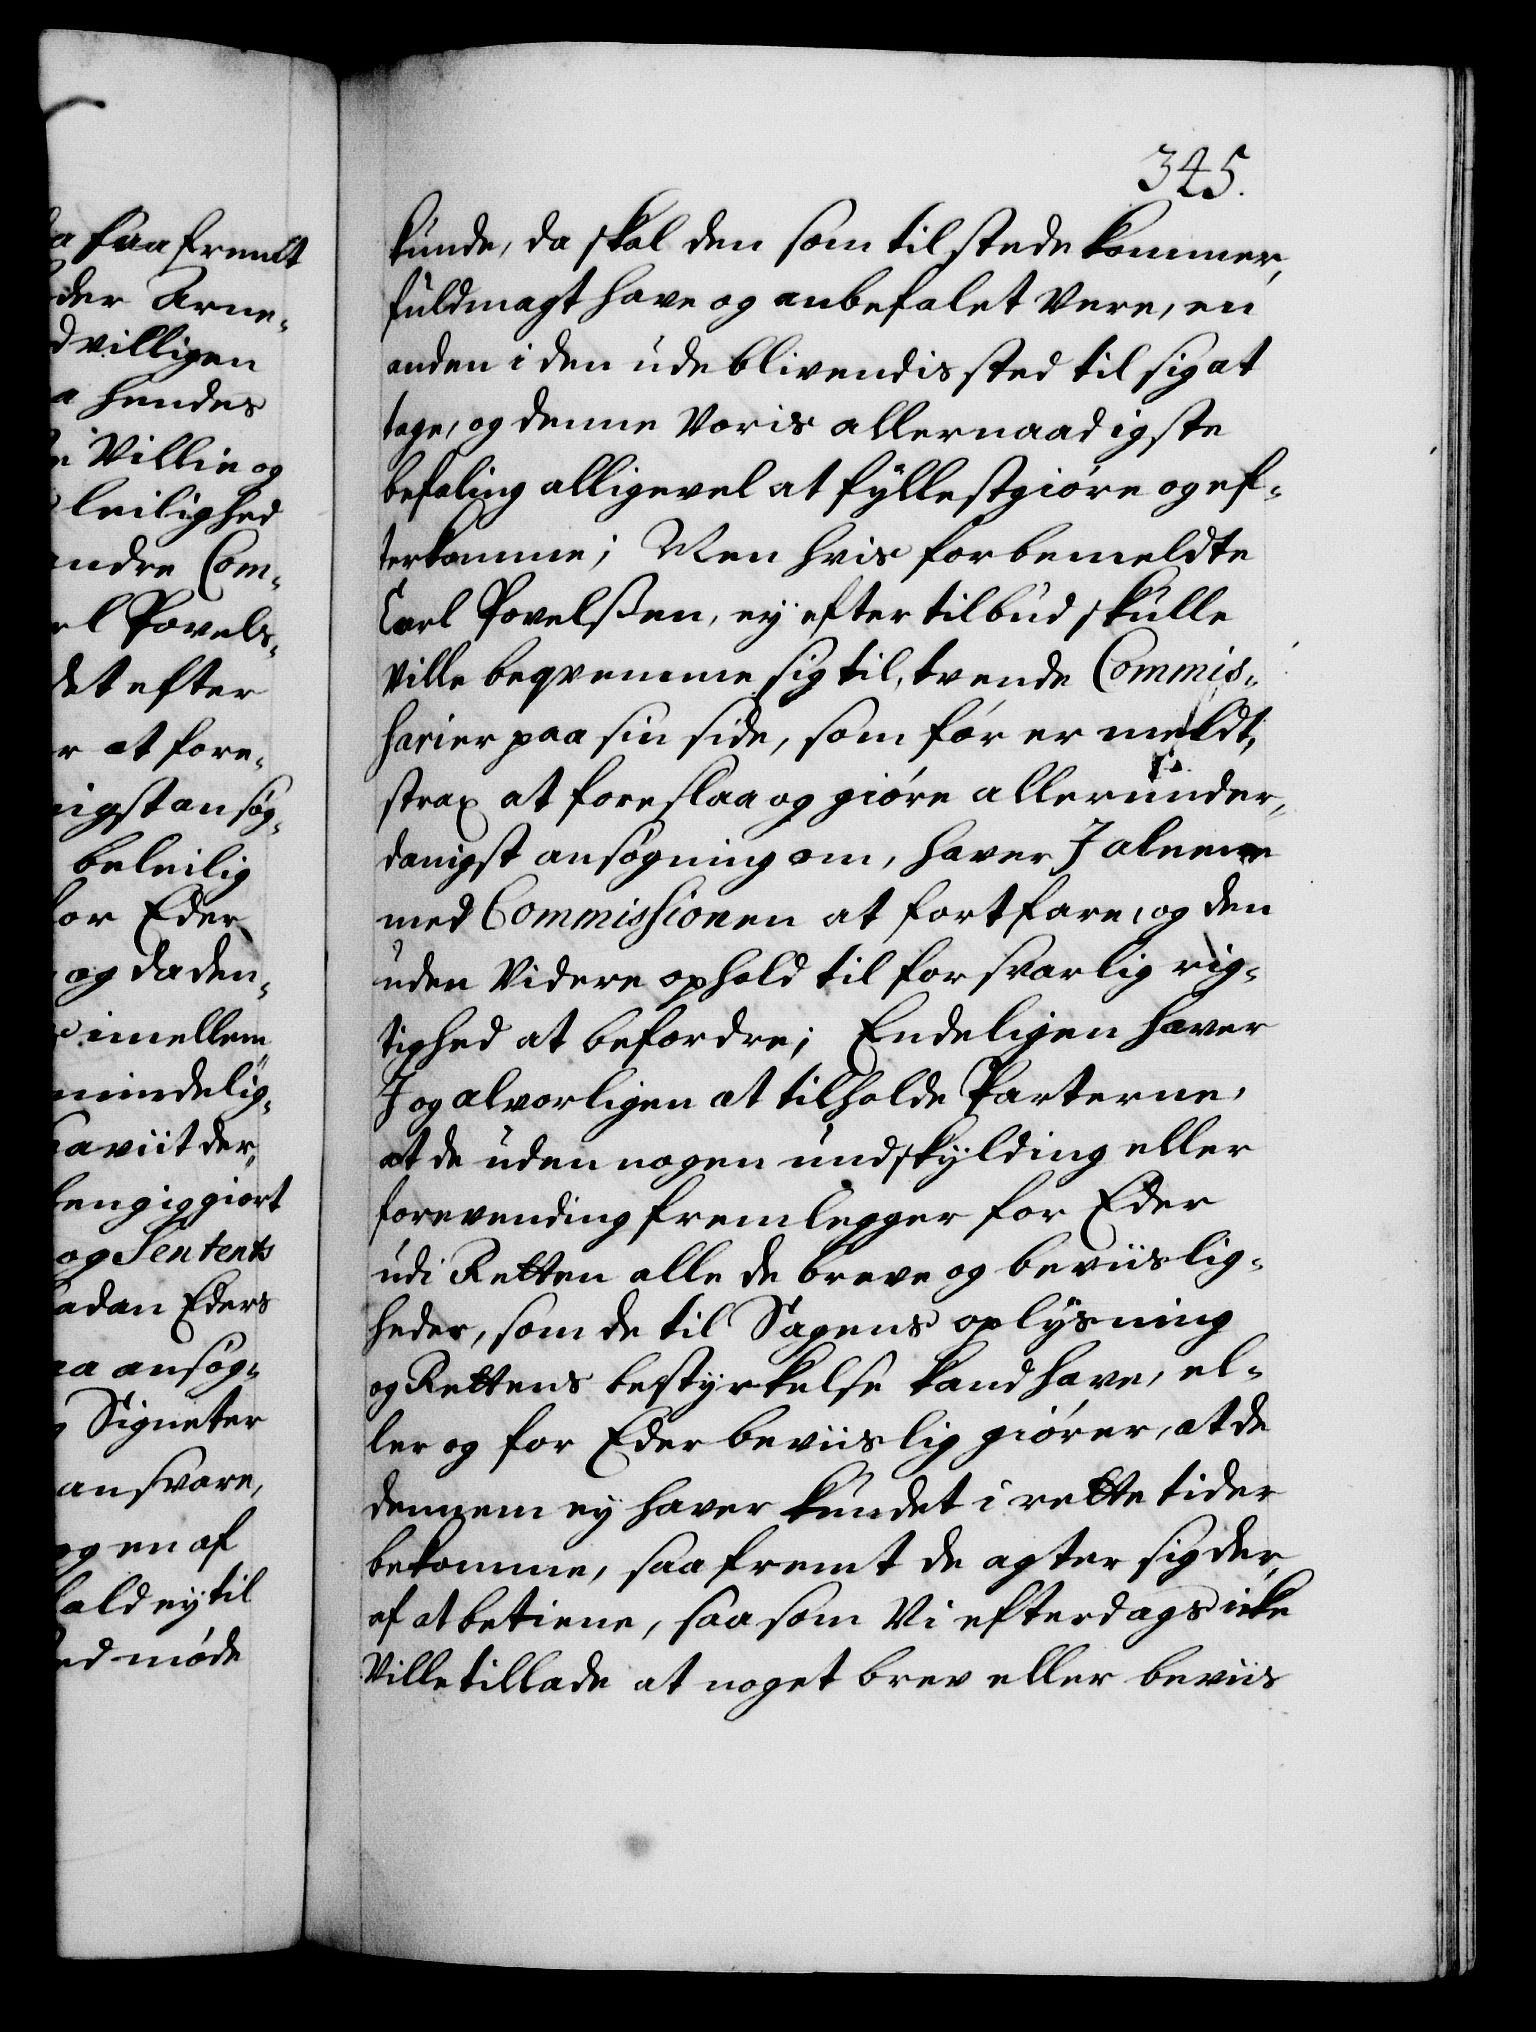 345.
a saa fremt
der Arne¬
dvilligen
a hendes
e Villie og
leilighed
andre Com¬
rl Povels¬
det efter
r at fore¬
nigst ansøg¬
beleilig
for Eder
og da den¬
imellem
mindelig¬
haviit der¬
giort
og Sentents
adan Eders
aa ansøg¬
Signeter
ansvare,
ogen af
fald ey til
ed møde
kunde, da skal den som tilstede kommer,
fuldmagt have og anbefalet Vere, en
anden i den udeblivendis sted til sig at
tage, og denne Voris allernaadigste
befaling alligevel at fyllestgiøre og ef¬
terkomme; Men hvis forbemeldte
Carl Povelssen, ey efter tilbud skulle
ville beqvemme sig til, tvende Commis¬
sarier paa sin side, som før er meldt,
strax at foreslaa og giøre allerunder¬
danigst ansøgning om, haver I aleene
med Commissionen at fortfare, og den
uden Videre ophold til forsvarlig rig¬
tighed at befordre; Endeligen haver
I og alvorligen at tilholde Parterne,
at de uden nogen undskylding eller
forevending fremlegger for Eder
udi Retten alle de breve og beviislig¬
heder, som de til Sagens oplysning
og Rettens bestyrkelse kand have, el¬
ler og for Eder beviislig giører, at de
dennem ey haver kundet i rette tider
bekomme, saafremt de agter sig der¬
af at betiene, saasom Vi efterdags icke
Ville tillade at noget brev eller beviis